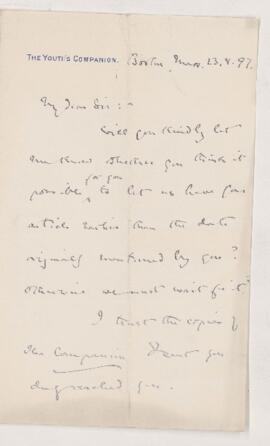 THE YOUTH'S COMPANION. Boston, Mass. 23.8.97.
My dear Sir:-
Will you kindly let
me know whether you think it
for you
possible to let us have your
article earlier than the date
originally mentioned by you?
Otherwise we must wait for it?
I trust the copies of
the Companion I sent you
duly reached you.